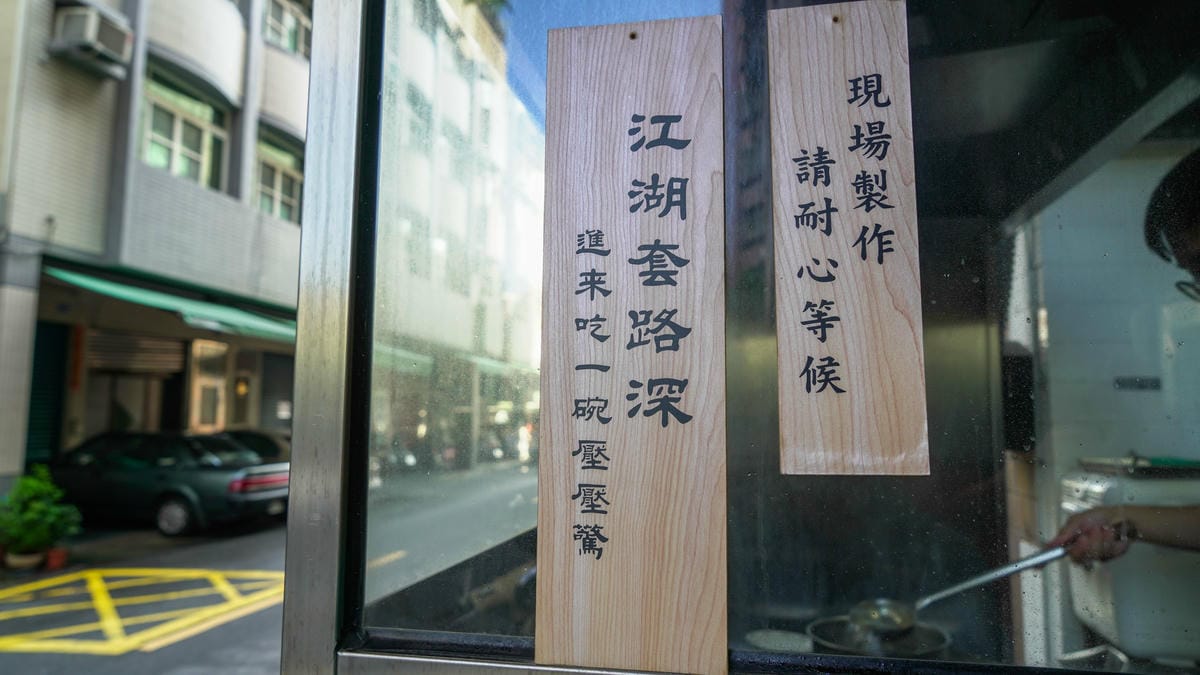 江湖套路深
進來吃一碗壓壓驚
現場製作
請耐心等候